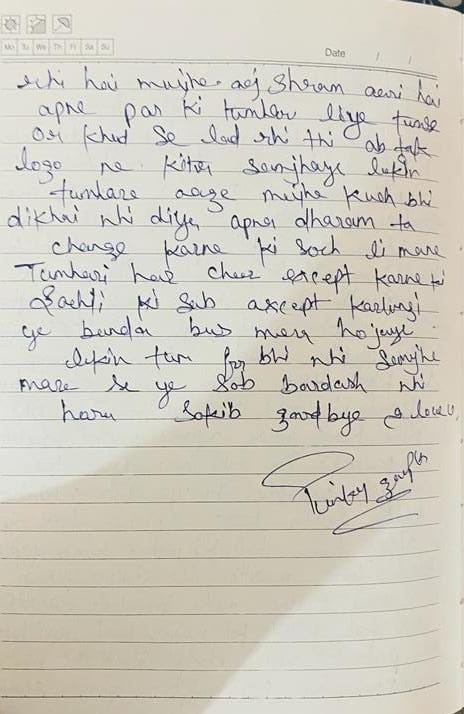 Mo Tu We Th Fr Sa Su
Date / /
rhi hai mujhe aaj Shram aari hai
apne par ki tumhare liye tumse
or khud se lad rhi thi ab tak
logo ne kitna Samjhaya lekin
tumhare aage mujhe kuch bhi
dikhai nhi diya, apna dharam ta
change karne ki soch li mane
Tumhari har cheez except karne ki
ki Sab axcept karlungi
ye banda bus mera hojaye
lekin tum fir bhi nhi Samjhe
mare se ye Sab bardash nhi
hara Sakib goodbye I love u,